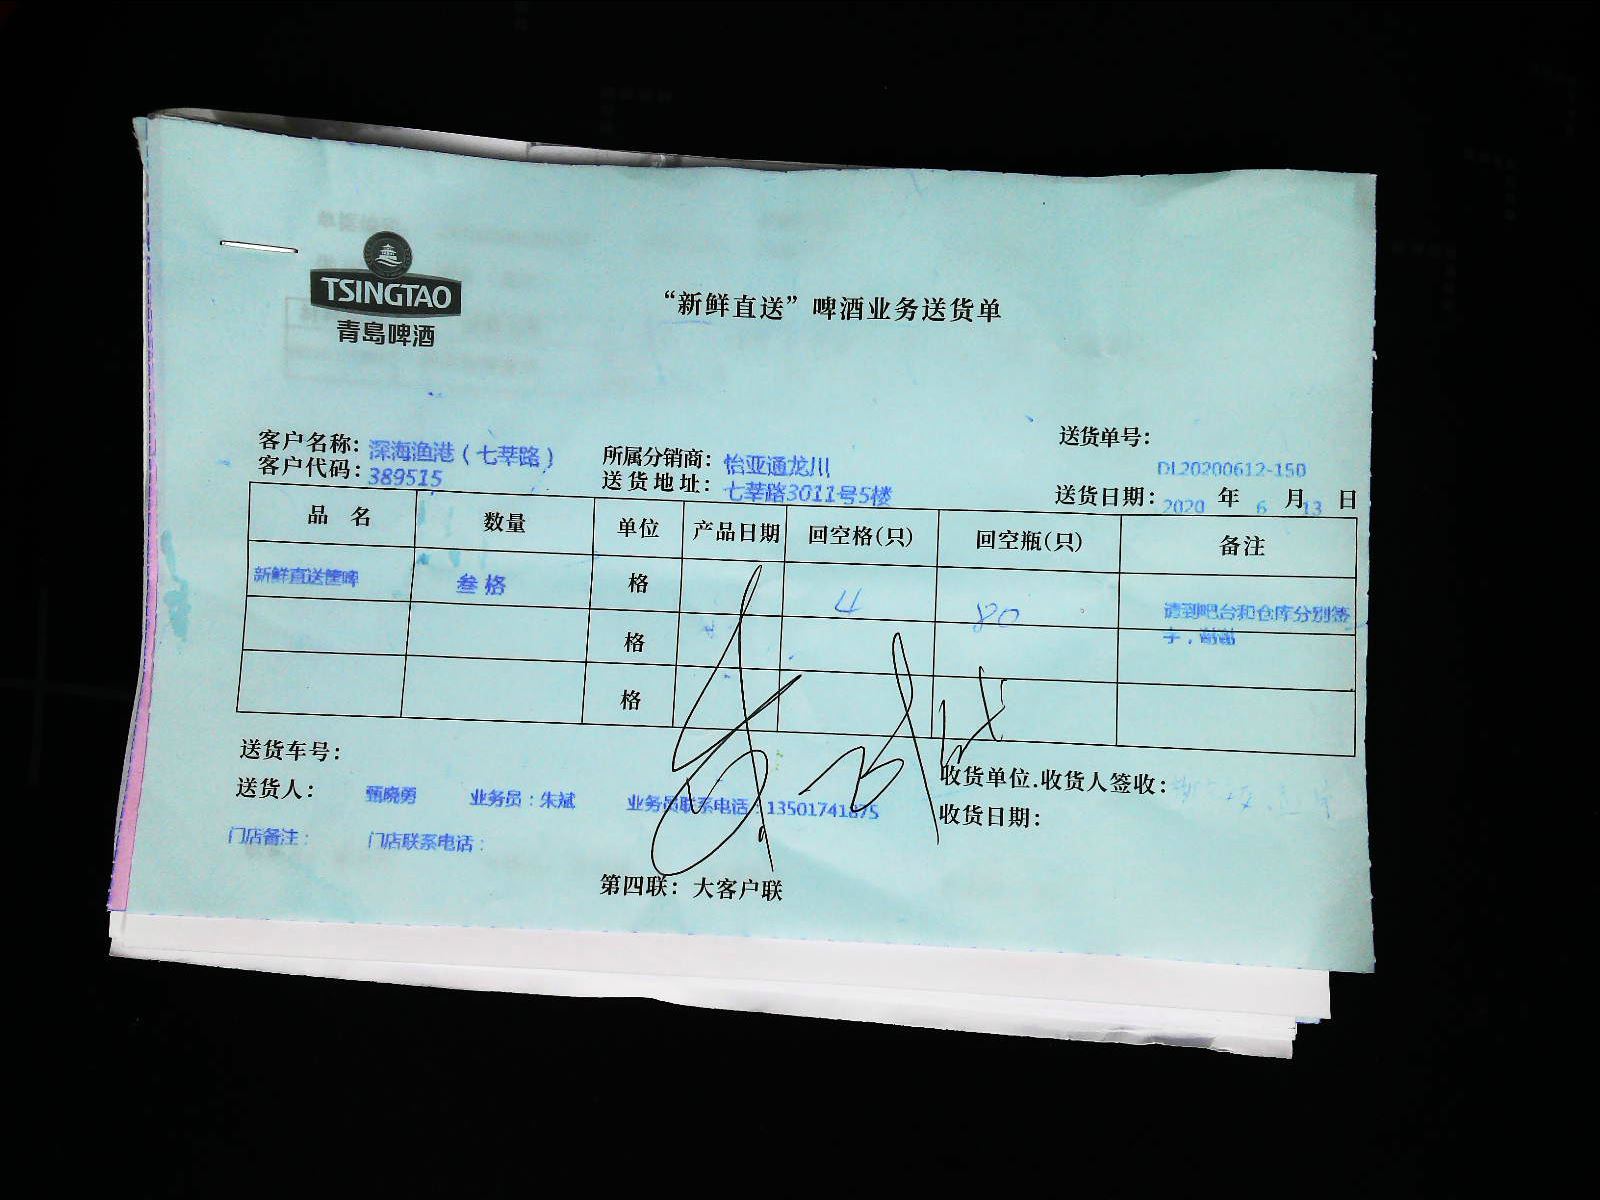 TSINGTAO
青島啤酒
“新鲜直送”啤酒业务送货单
送货单号：
DL20200612-150
客户名称：深海渔港（七莘路）
所属分销商：怡亚通龙川
客户代码：389515
送货地址：七莘路3011号5楼
送货日期：2020 年 6 月 13 日
品 名 数量 单位 产品日期 回空格(只) 回空瓶(只) 备注
新鲜直送筐啤 叁 格 格 4 80 请到吧台和仓库分别签
字，谢谢
格
格
送货车号：
收货单位.收货人签收：
送货人： 甄晓勇 业务员：朱斌 业务员联系电话：13501741875
收货日期：
门店备注： 门店联系电话：
第四联：大客户联